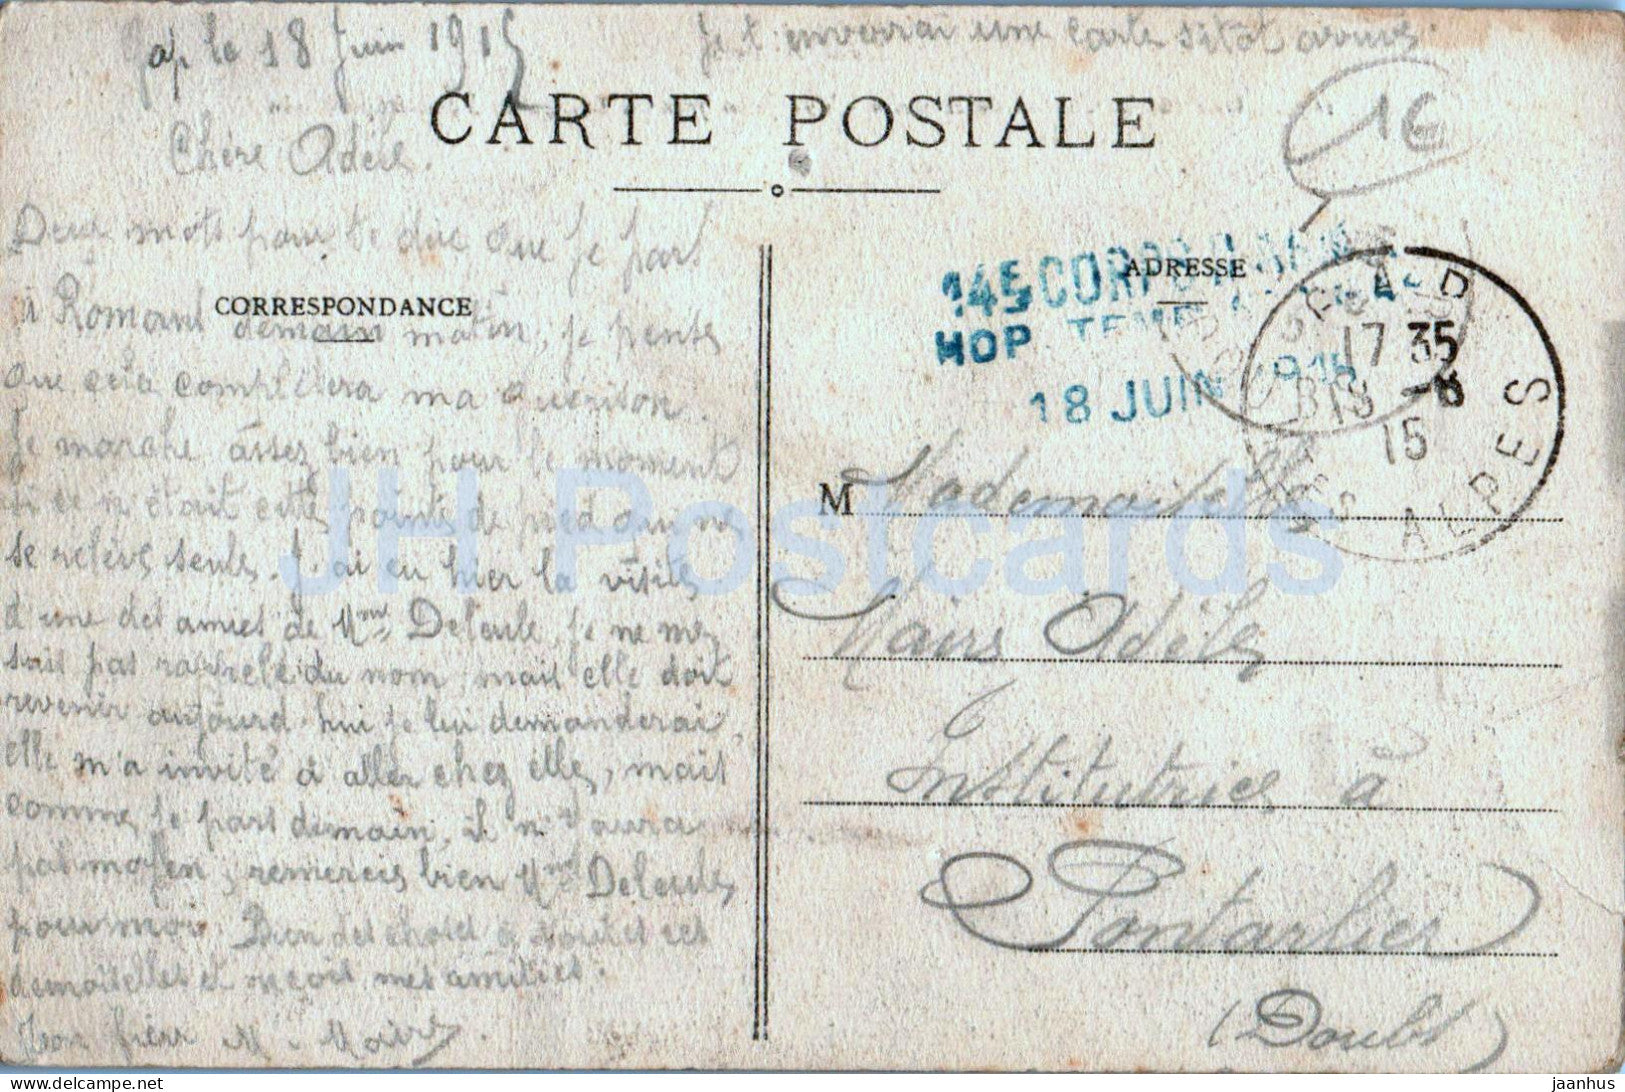 Gap le 18 Juin 1915
Je t'enverrai une carte sitôt arrivé.
CARTE POSTALE
Chère Adèle.
16
Deux mots pour te dire que je pars
à Romans demain matin, je pense
CORRESPONDANCE
que cela complètera ma guérison.
Je marche assez bien pour le moment
si ce n'était cette pointe de pied qui ne
se relève seule. J'ai eu hier la visite
d'une des amies de Mme Deleule, je ne me
suis pas rappelé du nom, mais elle doit
revenir aujourd'hui je lui demanderai,
elle m'a invité à aller chez elle, mais
comme je pars demain, il n'y aura
pas moyen, remercie bien Mme Deleule
pour moi. Bien des choses à toutes ces
demoiselles et reçois mes amitiés.
Ton frère
145 CORPS
ADRESSE
HOP. TEMP
18 JUIN 1915
GAP
17 35
18 -6
15
Htes ALPES
M Mademoiselle
Adèle
Institutrice à
Pontarlier
(Doubs)
JH Postcards
JH-Postcards
jaanhus
delcampe.net